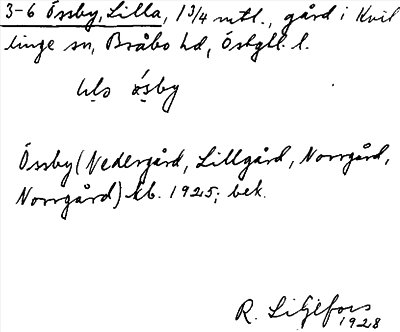 3-6 Össby, Lilla, 1 3/4 mtl., gård i Kvil
linge sn, Bråbo hd, Östgll. l.
ösby
Össby (Nedergård, Lillgård, Norrgård,
Norrgård) kb. 1925; bek.
R. Liljefors
1928